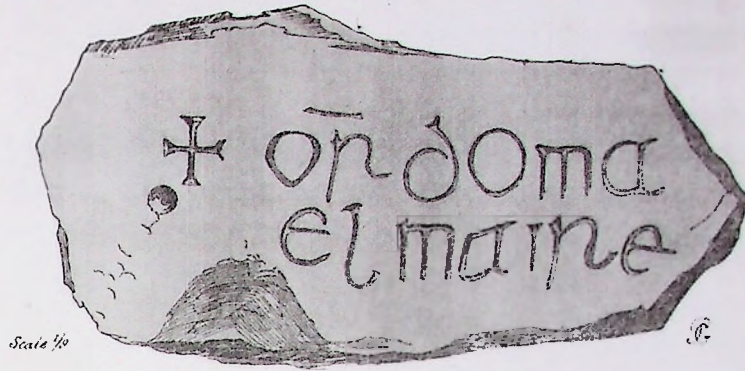 + or̄ do ma
elmaire
Scale 1/9